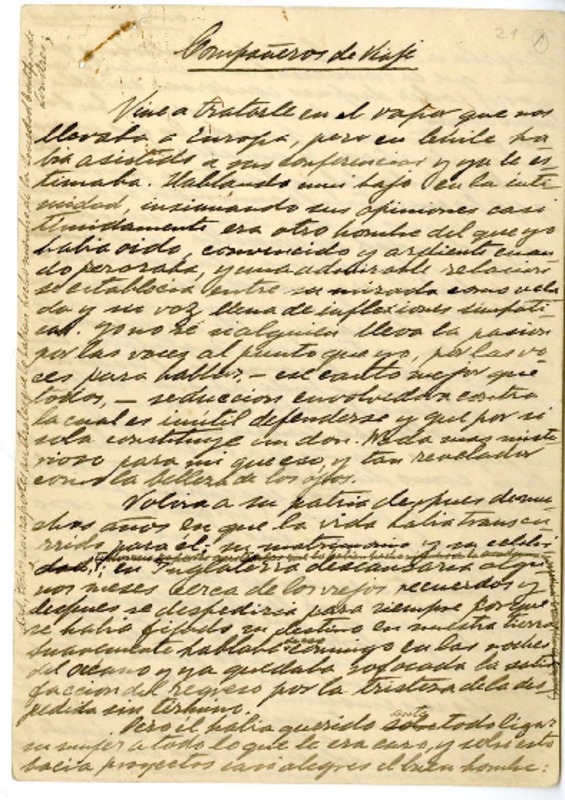 21
Compañeros de Viaje
Vine a tratarle en el vapor que nos
llevaba a Europa, pero en
bia asistido a sus conferencias y ya le es
timaba. Hablando muy bajo en la inti
midad, insinuando sus opiniones casi
tímidamente era otro hombre del que yo
habia oido, convencido y ardiente cuan
do peroraba, y una admirable relacion
se establecia entre su mirada como vela
da y su voz llena de inflexiones simpati
cas. Yo no sé si alguien lleva la pasion
por las voces al punto que yo, por las vo
ces para hablar, – ese canto mejor que
todos, – seduccion envolvedora contra
la cual es inútil defenderse y que por si
sola constituye un don. Nada mas miste
rioso para mi que eso, y tan revelador
como la belleza de los ojos.
Volvia a su patria despues de mu
chos anos en que la vida habia transcu
rrido para él, su matrimonio y su celebri
dad; en Inglaterra descansaria algu
nos meses cerca de los viejos recuerdos y
despues se despediria para siempre porque
se habia fijado su destino en nuestra tierra
suavemente hablaba conmigo en las noches
del océano y ya quedaba sofocada la satis
faccion del regreso por la tristeza de la des
pedida sin término.
Pero él habia querido sobre todo ligar
su mujer a todo lo que le era caro, y sobre esto
hacia proyectos casi alegres el buen hombre: